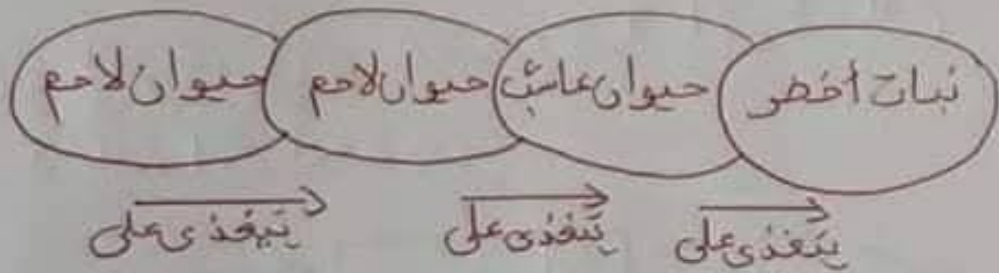 نبات أخضر حيوان عاشب حيوان لاحم حيوان لاحم
يتغذى على يتغذى على يتغذى على